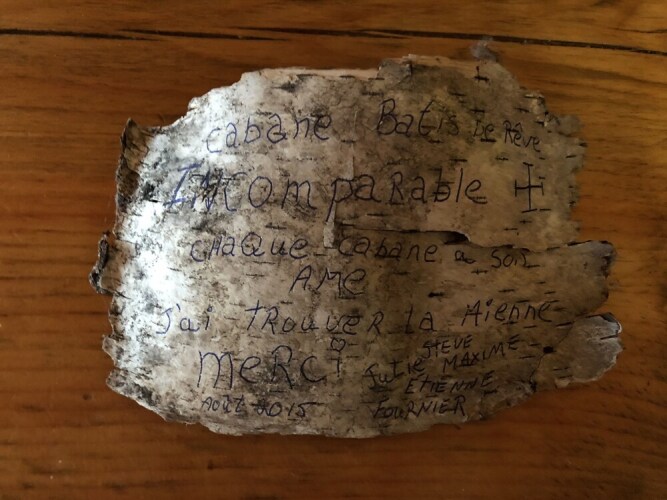 cabane Batis De Rêve
INcomparable
CHAQUE cabane a Son
AME
J'ai TROUVER la Aienne
MERCi
STEVE
Julie MAXIME
ETIENNE
AOUT 2015 FOURNIER